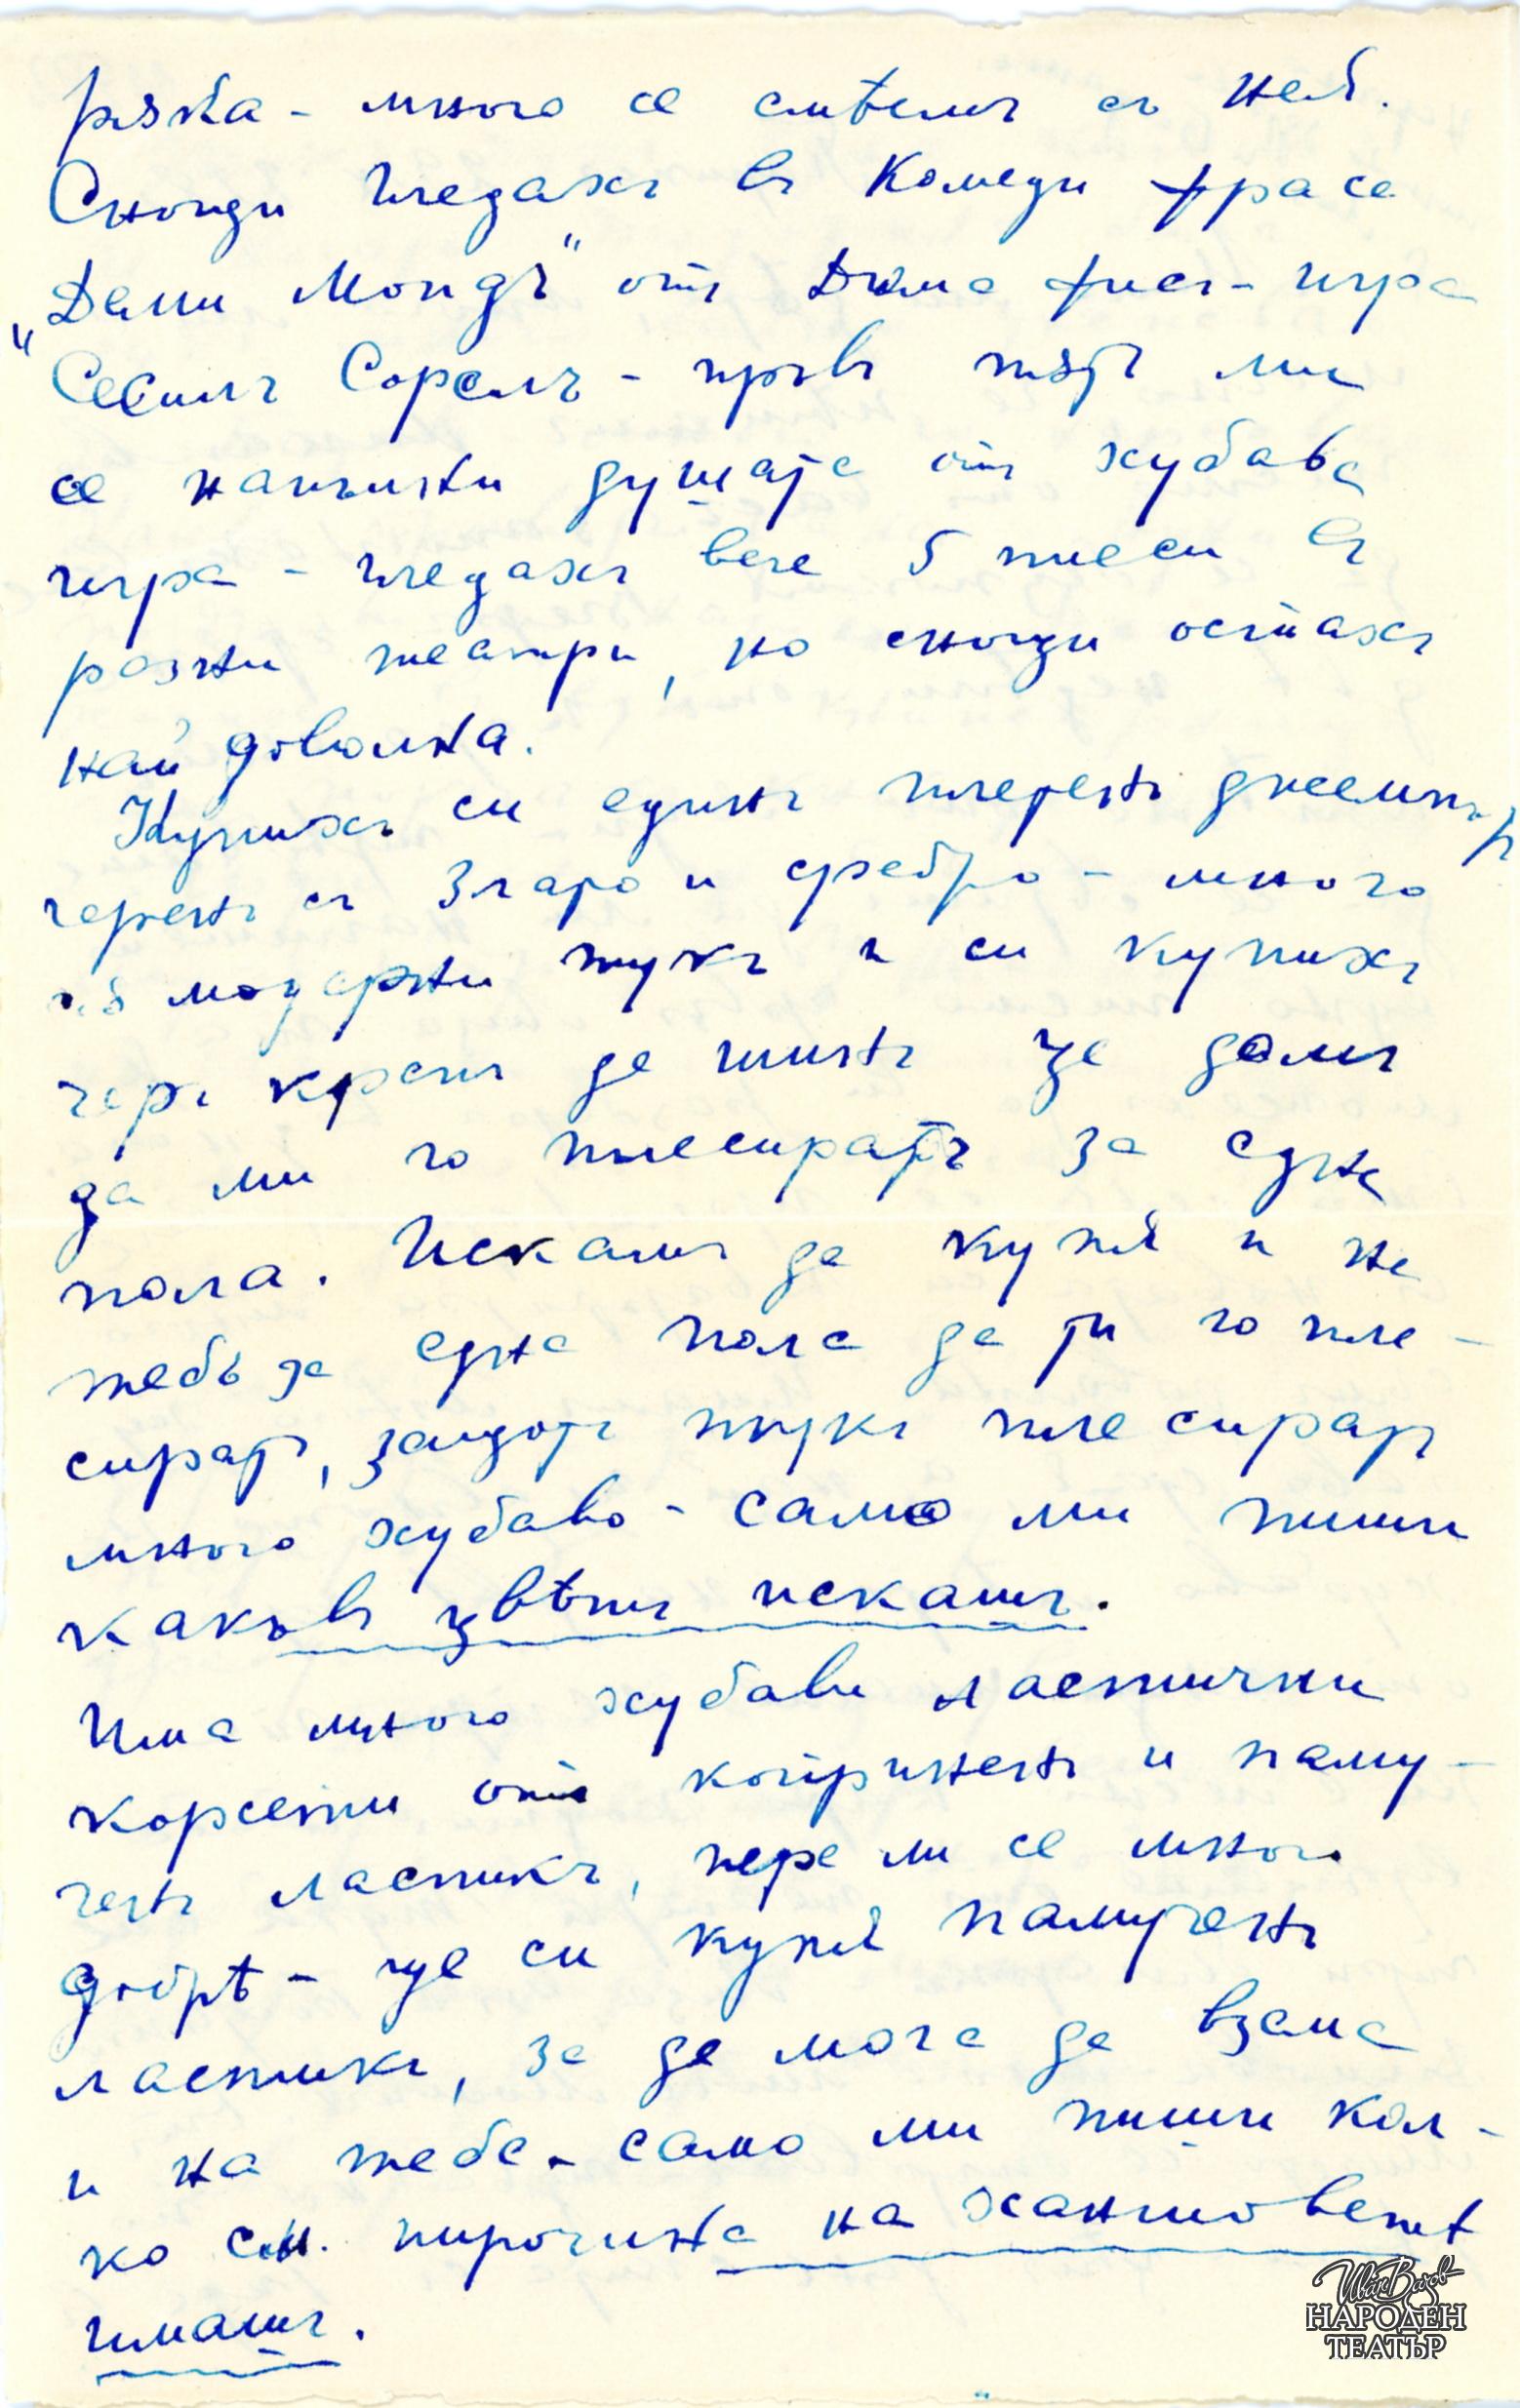 рѫка - много се смѣемъ съ неѭ.
Снощи гледахъ въ Комеди франсе
„Деми Мондъ" отъ Дюма фисъ - игра
Сесилъ Сорелъ - пръвъ пѫтъ ми
се напълни душата отъ хубава
игра - гледахъ вече 5 пиеси въ
разни театри, но снощи останахъ
най доволна.
Купихъ си единъ плетенъ
черенъ съ злато и сребро - много
модерни тукъ и си купихъ
черъ крепъ де шинъ ще дамъ
да ми го плесиратъ за една
пола. Искамъ да купѭ и на
тебъ за една пола да ти го пле-
сиратъ, защото тукъ плесиратъ
много хубаво - само ми пиши
какъвъ цвѣтъ искашъ.
Има много хубави ластични
корсети отъ коприненъ и паму-
ченъ ластикъ, пере ли се много
добрѣ - ще си купѭ памученъ
ластикъ, за да мога да взема
и на тебе - само ми пиши кол-
ко см. широчина на ханшоветѣ
имашъ.
Иван Вазов
НАРОДЕН
ТЕАТЪР